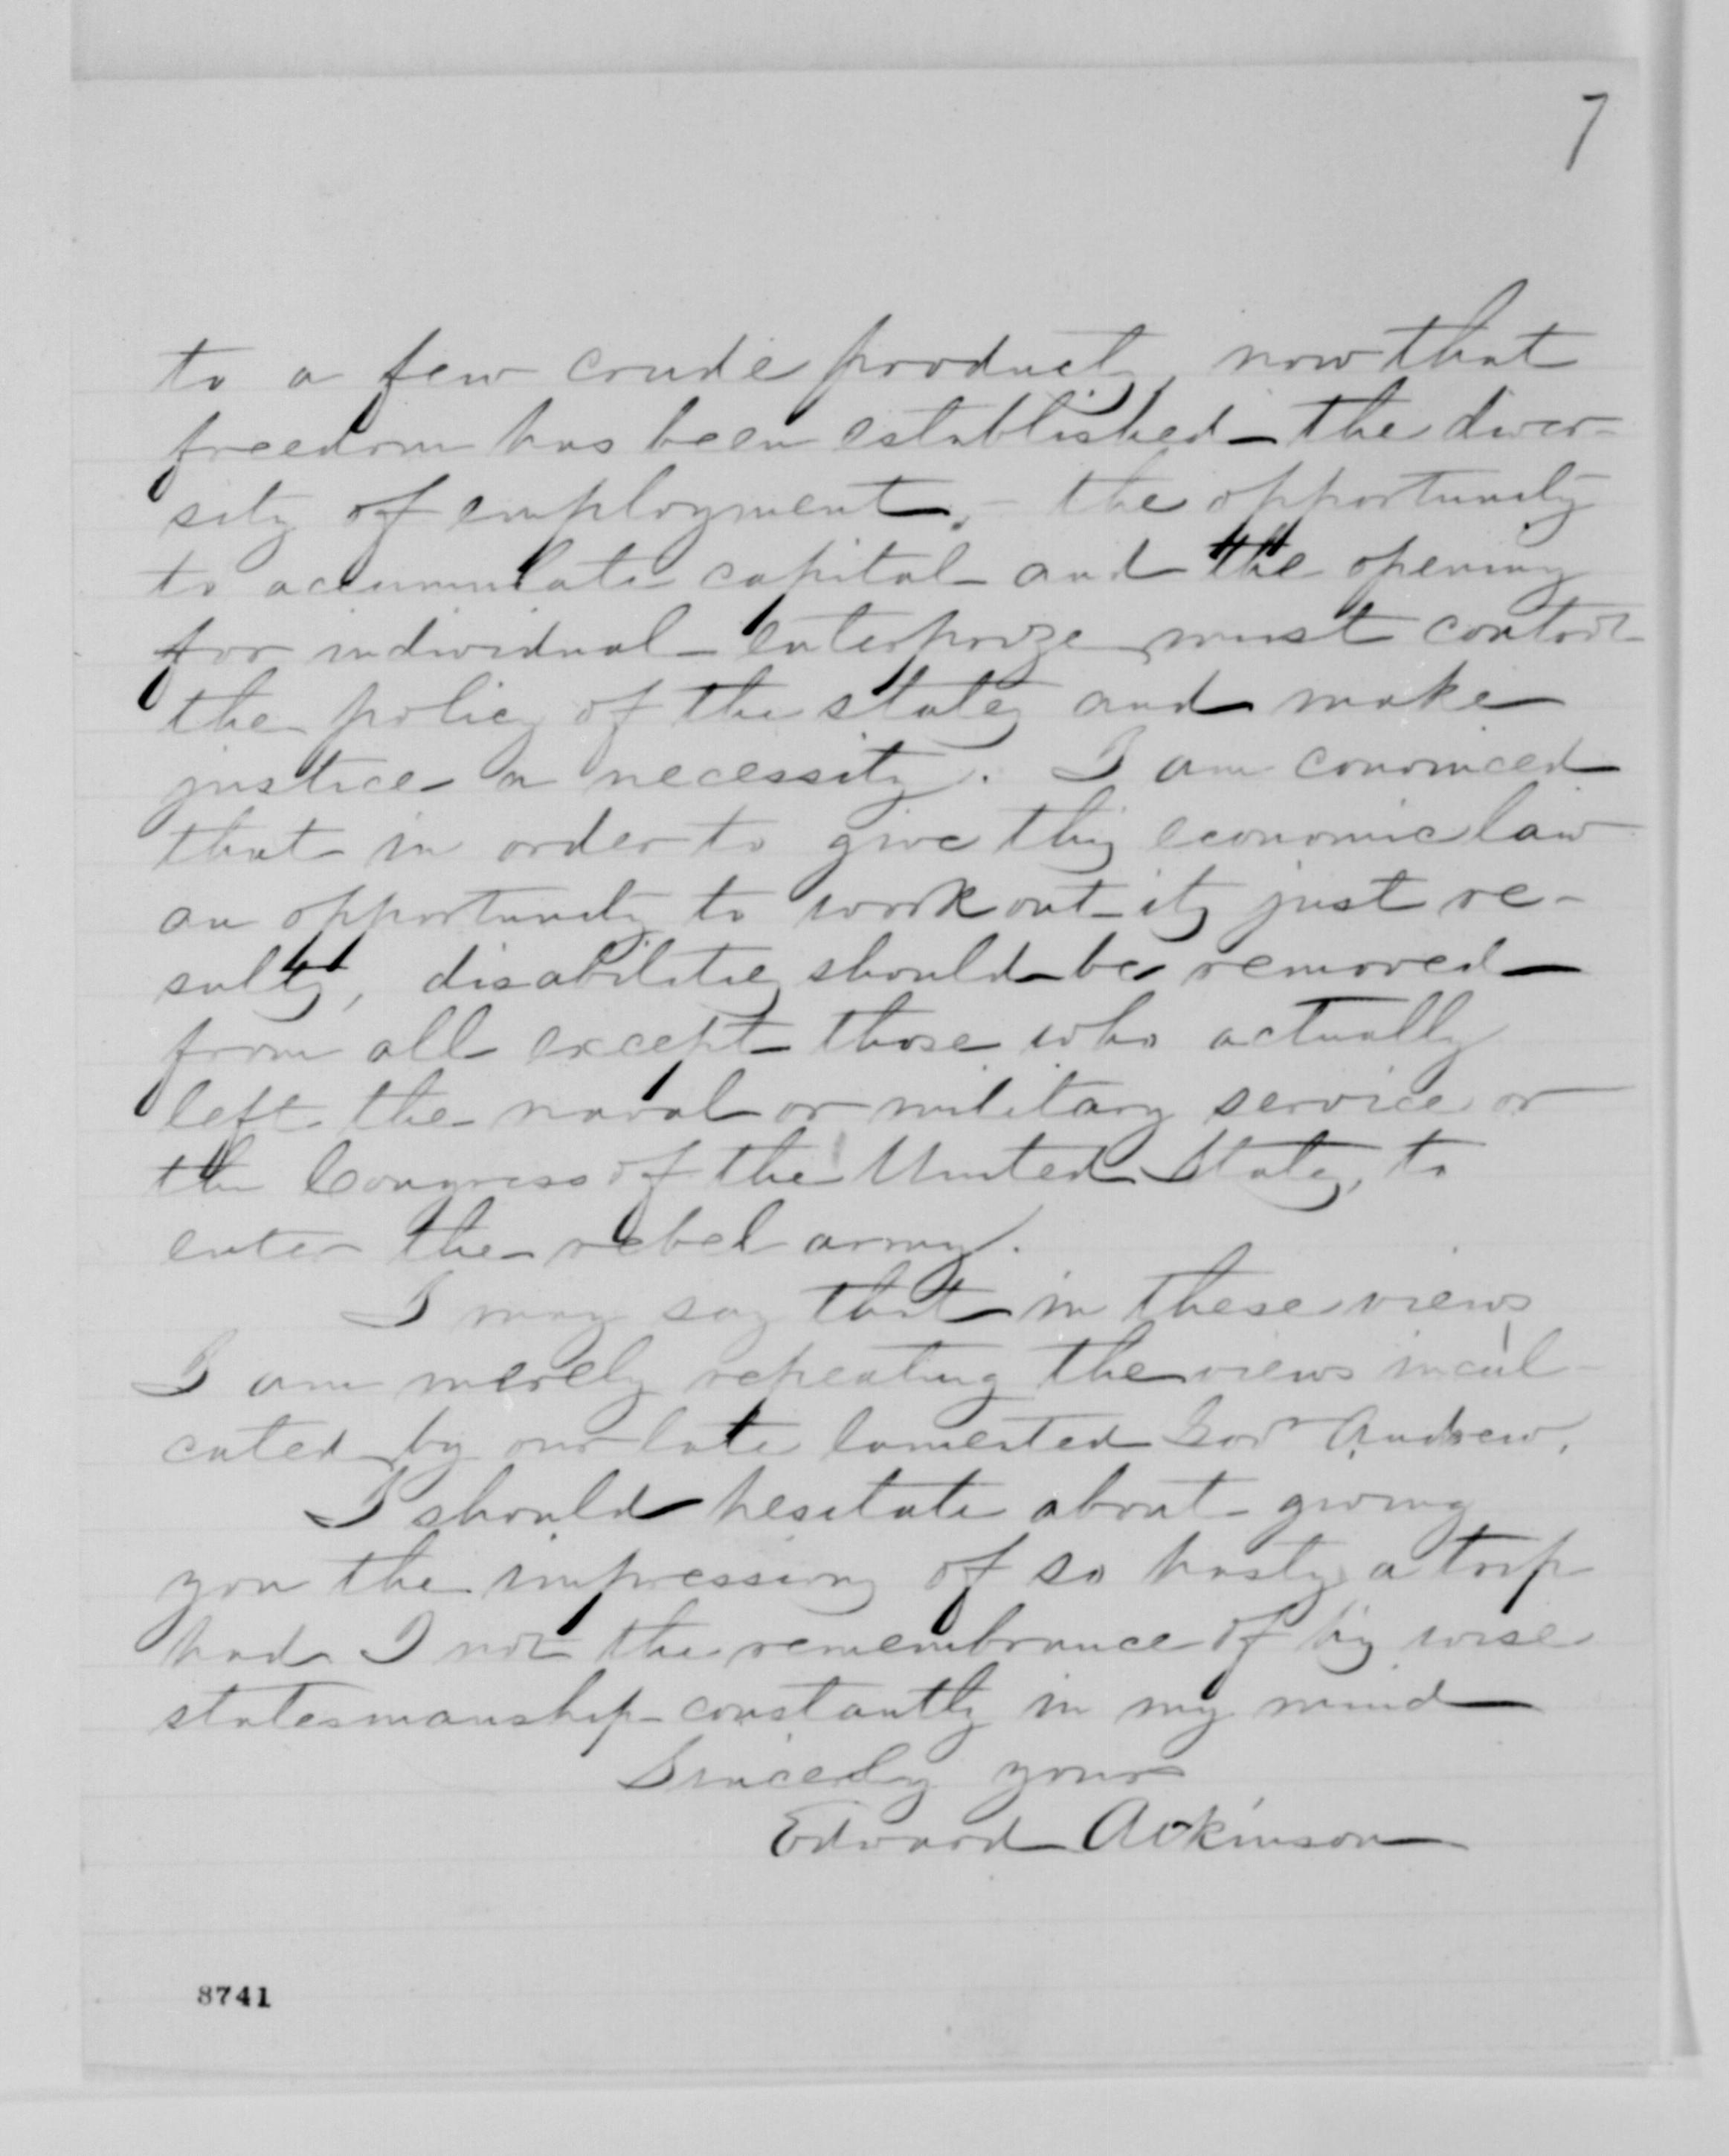 7
to a few crude products, now that
freedom has been established – the diver-
sity of employment, – the opportunity
to accumulate capital and the opening
for individual enterprize must control
the policy of the states and make
justice a necessity. I am convinced
that in order to give this economic law
an opportunity to work out its just re-
sults, disabilities should be removed
from all except those who actually
left the naval or military service or
the Congress of the United States, to
enter the rebel army.
I may say that in these views
I am merely repeating the views incul-
cated by our late lamented Govr Andrew.
I should hesitate about giving
you the impressions of so hasty a trip
had I not the remembrance of his wise
statesmanship constantly in my mind
Sincerely yours
Edward Atkinson
8741